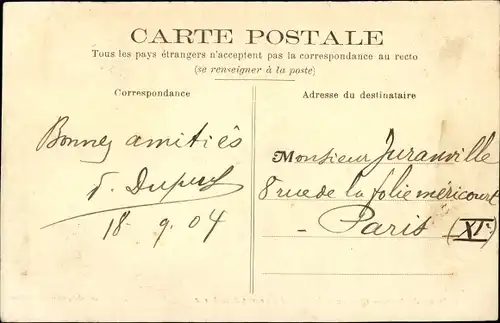 CARTE POSTALE
Tous les pays étrangers n'acceptent pas la correspondance au recto
(se renseigner à la poste)
Correspondance
Adresse du destinataire
Bonnes amitiés
18-9.04
Monsieur Juranville
8 rue de la folie méricourt
- Paris - (XIe)